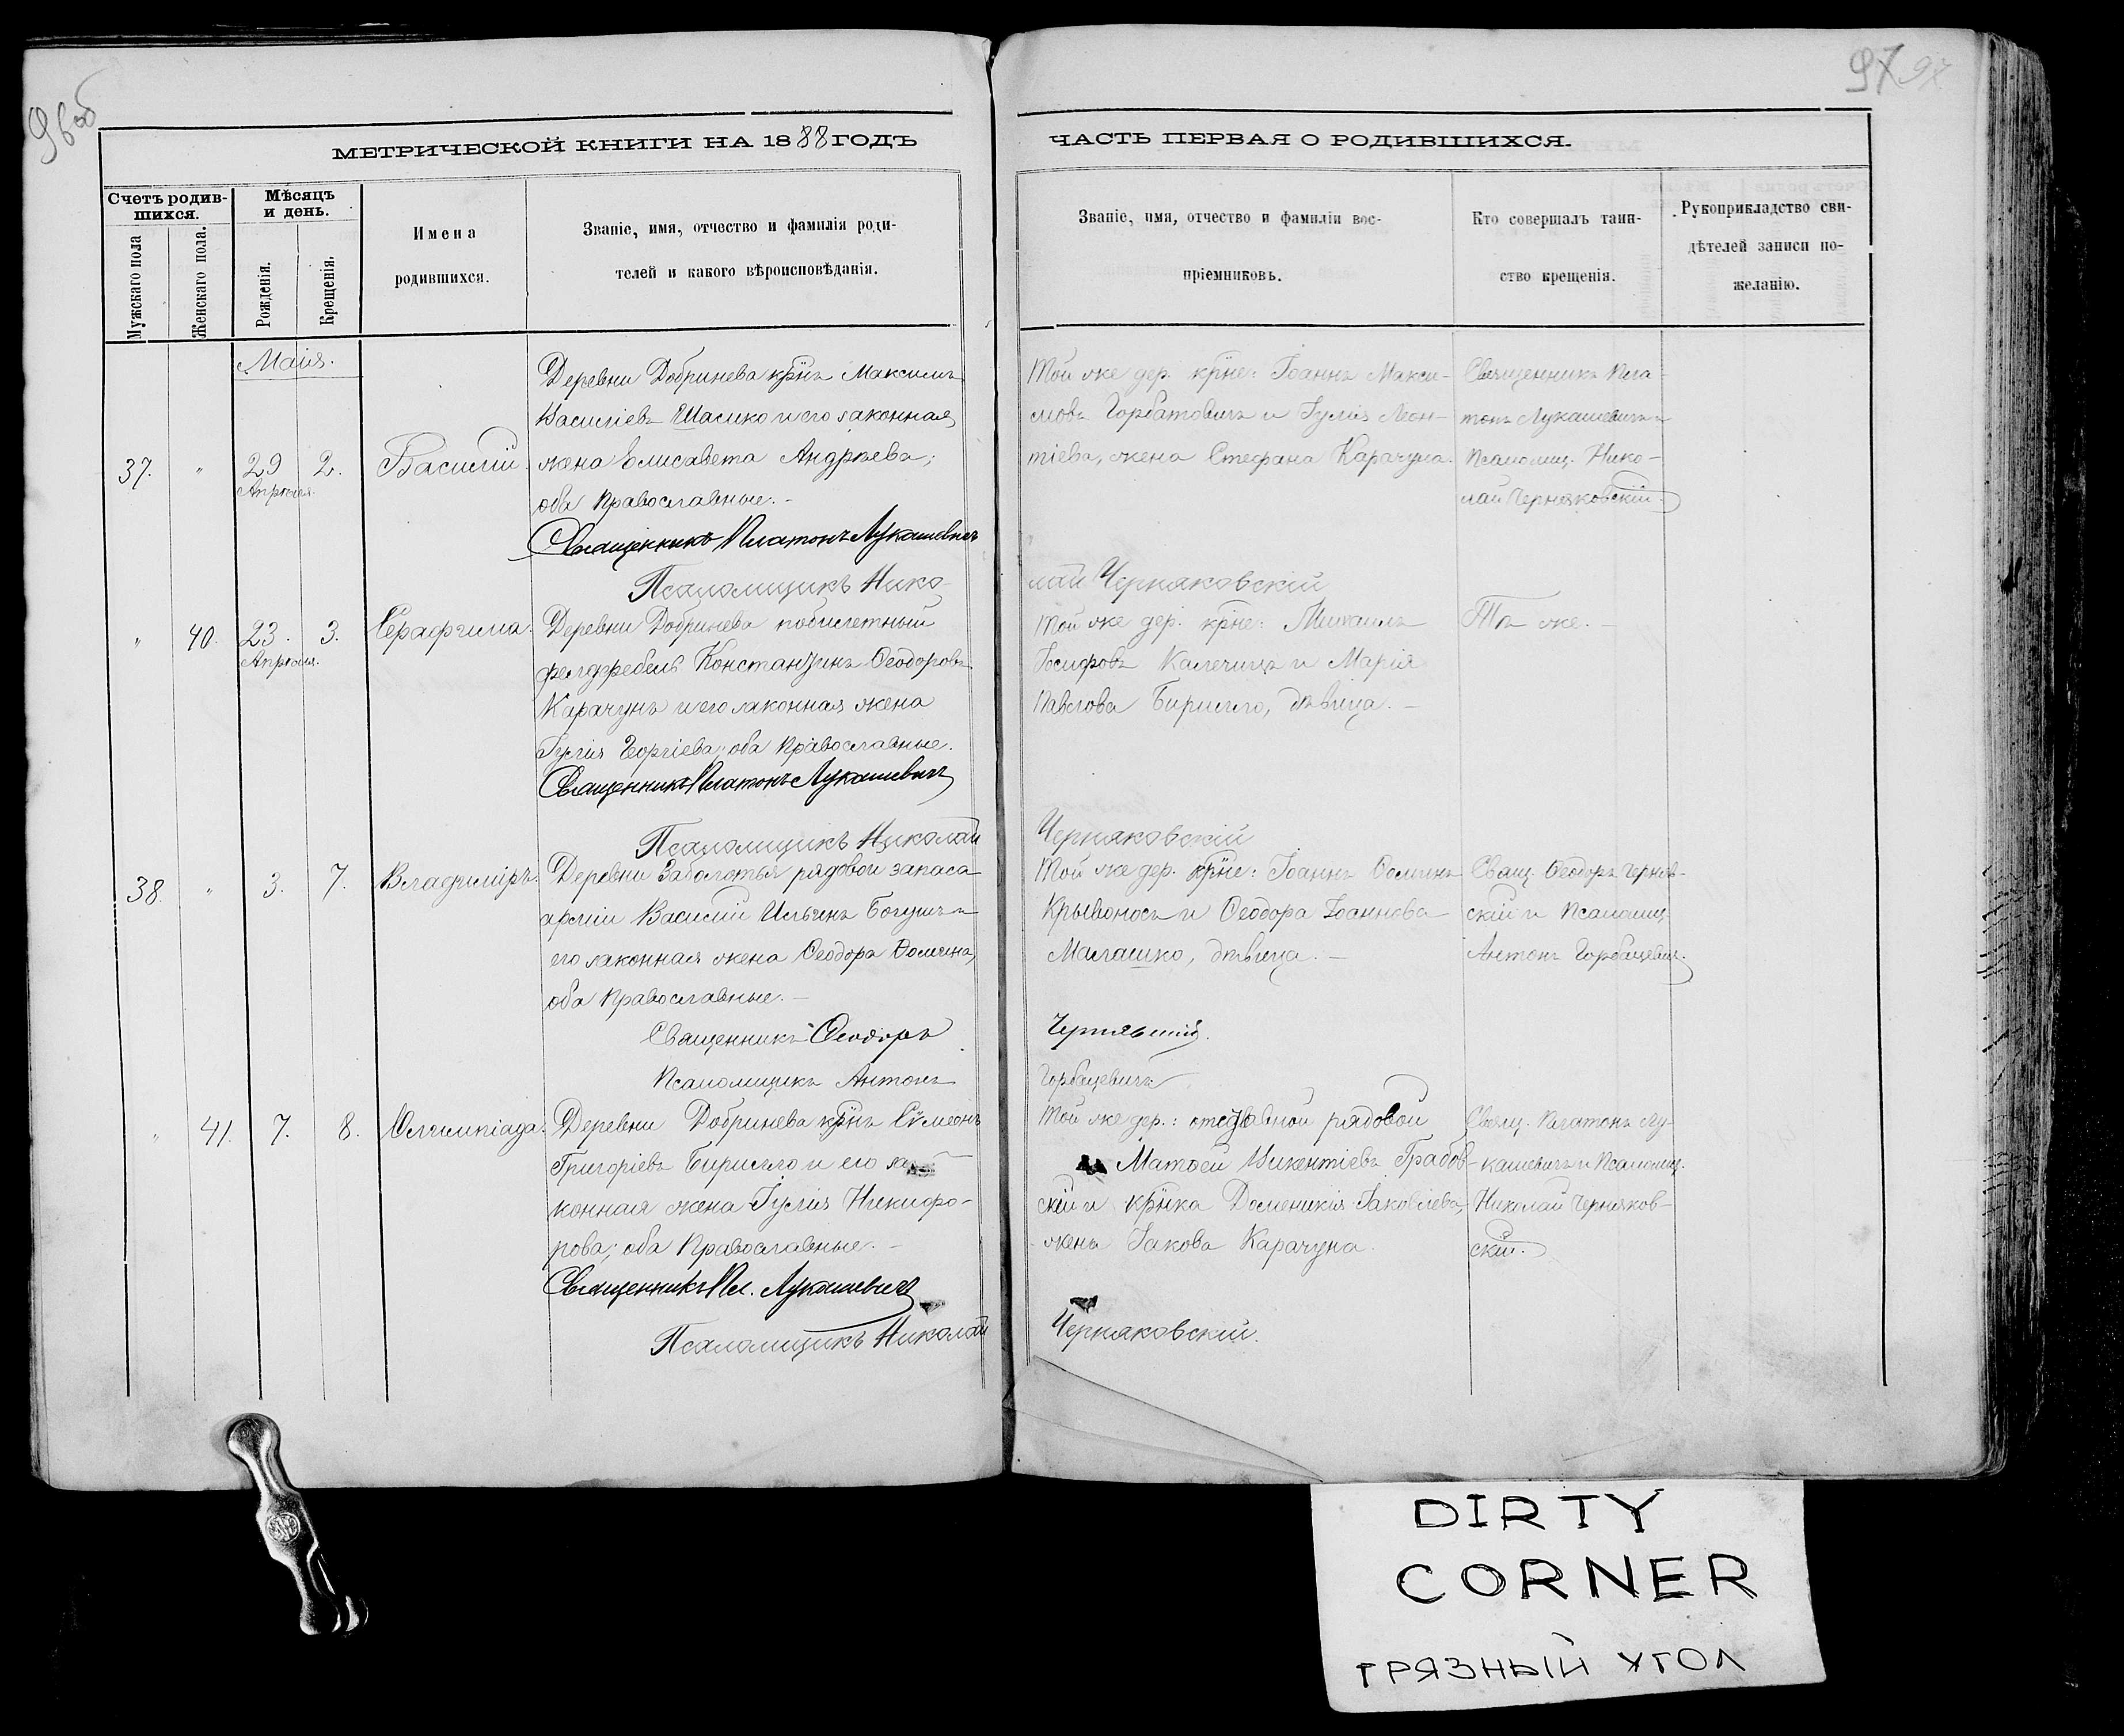 96 об
97 97
МЕТРИЧЕСКОЙ КНИГИ НА 1888 ГОДЪ
ЧАСТЬ ПЕРВАЯ О РОДИВШИХСЯ.
Счетъ родив-
шихся.
Мужскаго пола
Женскаго пола.
Мѣсяцъ
и день.
Рожденія.
Крещенія.
Имена
родившихся.
Званіе, имя, отчество и фамилія роди-
телей и какого вѣроисповѣданія.
Званіе, имя, отчество и фамиліи вос-
пріемниковъ.
Кто совершалъ таин-
ство крещенія.
Рукоприкладство сви-
дѣтелей записи по-
желанію.
Маія.
37. " 29 Апрѣля. 2. Василій.
Деревни Добринева крнъ Максимъ
Василіевъ Шасико и его законная
жена Елисавета Андреева;
оба Православные. -
Священникъ Платонъ Лукашевичъ
Псаломщикъ Нико-
Той же дер. крне: Іоаннъ Макси-
мовъ Горбатовичъ и Іулія Леон-
тіева, жена Стефана Карачуна.
лай Черняковскій
Священникъ Пла-
тонъ Лукашевичъ и
Псаломщ. Нико-
лай Черняковскій.
" 40. 23. Апрѣля. 3. Серафима.
Деревни Добринева побилетный
фелдфебель Константинъ Ѳеодоровъ
Карачунъ и его законная жена
Іулія Георгіева; оба Православные.
Священникъ Платонъ Лукашевичъ
Псаломщикъ Николай
Той же дер. крне: Михаилъ
Іосифовъ Калечицъ и Марія
Павлова Бирилло, дѣвица. -
Черняковскій
Тѣ же. -
38. " 3. 7. Владиміръ.
Деревни Заболотья рядовой запаса
арміи Василій Ильинъ Богушъ и
его законная жена Ѳеодора Ѳомина,
оба Православные. -
Священникъ Ѳеодоръ
Псаломщикъ Антонъ
Той же дер. крне: Іоаннъ Ѳоминъ
Крывоносъ и Ѳеодора Іоаннова
Малашко, дѣвица. -
Чернявскій.
Горбацевичъ
Свящ. Ѳеодоръ Черняв-
скій и Псаломщ.
Антонъ Горбацевич.
" 41. 7. 8. Олимпіада.
Деревни Добринева крнъ Сѵмеонъ
Григоріевъ Бирилло и его за-
конная жена Іулія Никифо-
рова; оба Православные. -
Священникъ Пл. Лукашевичъ
Псаломщикъ Николай
Той же дер.: отставной рядовой
Матѳей Викентіевъ Грабов-
скій и крнка Доменикія Іаковлева,
жена Іакова Карачуна.
Черняковскій.
Свящ. Платонъ Лу-
кашевичъ и Псаломщ.
Николай Черняков-
скій.
DIRTY
CORNER
ГРЯЗНЫЙ УГОЛ